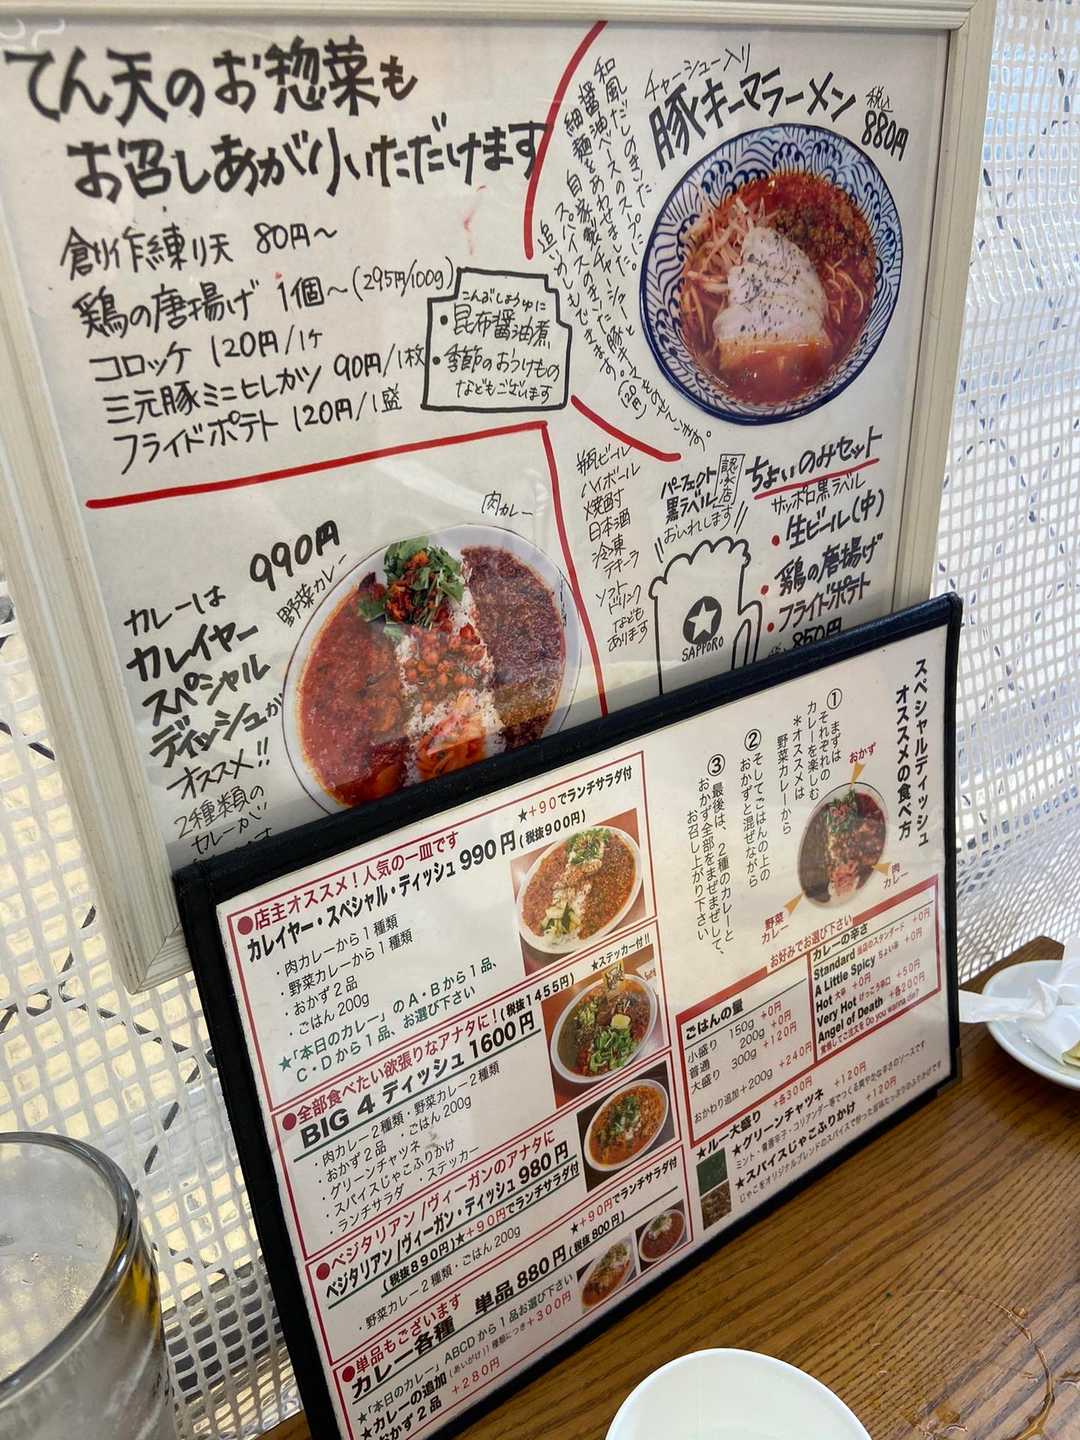 てん天のお惣菜も
お召しあがりいただけます
創作練り天 80円〜
鶏の唐揚げ 1個〜(295円/100g)
コロッケ 120円/1ケ
三元豚ミニヒレカツ 90円/1枚
フライドポテト 120円/1盛
こんぶしょうゆに
・昆布醤油煮
・季節のおつけもの
などもございます
チャーシュー入り
豚キーマラーメン
税込
880円
和風だしのきいた
醤油ベースのスープに、
細麺をあわせました。
自家製チャーシューと
スパイスのきいた豚キーマ
追いめしもできます。
瓶ビール
ハイボール
焼酎
日本酒
冷凍
テキーラ
ソフト
ドリンク
なども
あります
パーフェクト
黒ラベル
認定店
おいれします
SAPPORO
ちょいのみセット
サッポロ黒ラベル
・生ビール(中)
・鶏の唐揚げ
・フライドポテト
850円
990円
肉カレー
野菜カレー
カレーは
カレイヤー
スペシャル
ディッシュが
オススメ!!
2種類の
カレーが
●店主オススメ!人気の一皿です
★+90でランチサラダ付
カレイヤー・スペシャル・ディッシュ 990円(税抜900円)
・肉カレーから1種類
・野菜カレーから1種類
・おかず2品
・ごはん 200g
★「本日のカレー」のA・Bから1品、
C・Dから1品、お選び下さい
★ステッカー付!!
●全部食べたい欲張りなアナタに!(税抜1455円)
BIG 4 ディッシュ 1600円
・肉カレー2種類・野菜カレー2種類
・おかず2品 ・ごはん 200g
・グリーンチャツネ
・スパイスじゃこふりかけ
・ランチサラダ ・ステッカー
●ベジタリアン/ヴィーガンのアナタに
ベジタリアン/ヴィーガン・ディッシュ 980円
(税抜890円)★+90円でランチサラダ付
・野菜カレー2種類・ごはん 200g
★+90円でランチサラダ付
●単品もございます
カレー各種 単品 880円(税抜800円)
★「本日のカレー」ABCDから1品お選び下さい
★カレーの追加(あいがけ)1種類につき+300円
おかず2品 +280円
スペシャルディッシュ
オススメの食べ方
① まずは
それぞれの
カレーを楽しむ
＊オススメは
野菜カレーから
② そしてごはんの上の
おかずと混ぜながら
③ 最後は、2種のカレーと
おかず全部をまぜまぜして、
お召し上がり下さい
おかず
肉
カレー
野菜
カレー
お好みでお選び下さい
ごはんの量
小盛り 150g +0円
普通 200g +0円
大盛り 300g +120円
おかわり追加+200g +240円
カレーの辛さ
Standard 当店のスタンダード +0円
A Little Spicy ちょい辛 +0円
Hot 大辛 +0円
Very Hot けっこう辛口 +50円
Angel of Death +各200円
覚悟してご注文を Do you wanna die?
★ルー大盛り +各300円
★グリーンチャツネ +120円
ミント、青唐辛子、コリアンダー等でつくる爽やかな辛さのソースです
★スパイスじゃこふりかけ +120円